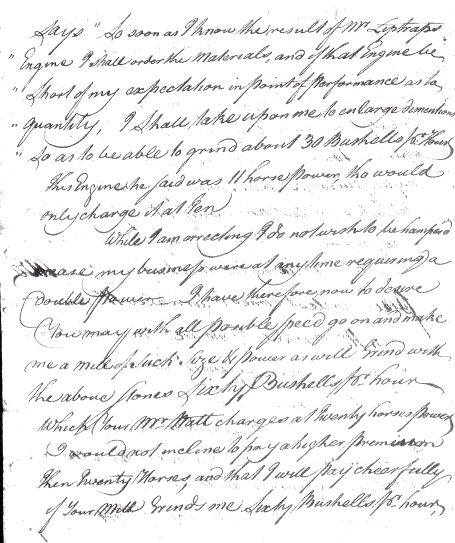 Says "So soon as I know the result of Mr. Liptraps
"Engine I shall order the Materials, and if that Engine be
"Short of my expectation in point of Performance as to
"quantity, I Shall take upon me to enlarge dementions
"So as to be able to grind about 30 Bushells pr. Hour
This Engine he said was 11 horse Power, tho would
only charge it at Ten
While I am errecting I do not wish to be hamper'd
in case my business were at any time requiring a
double Power I have therefore now to desire
You may with all possible speed go on and make
me a mill of such Size & power as will Grind with
the above stones Sixty Bushells pr. hour
Which Your Mr. Watt charges at Twenty horses Power
I would not incline to pay a higher premium
then Twenty Horses, and that I will pay cheerfully
if Your Mill Grinds me Sixty Bushells pr. hour,